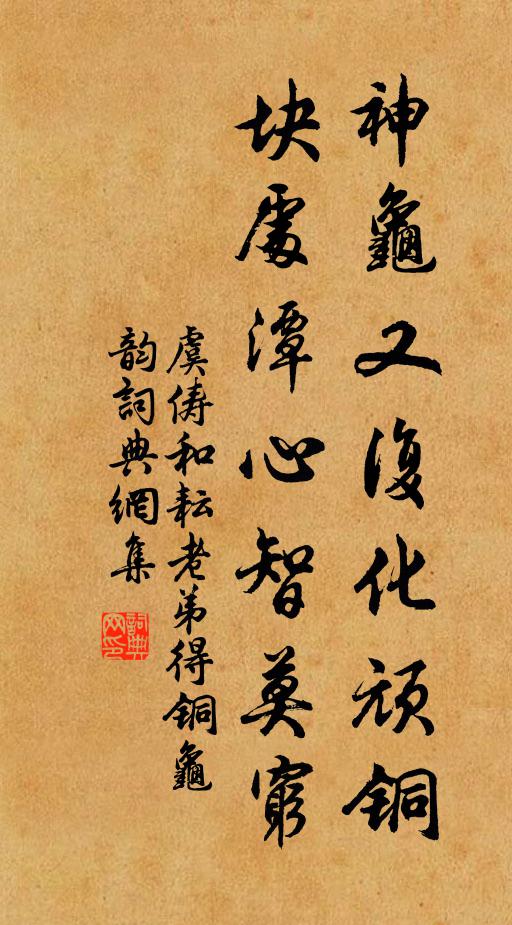 神龜又復化頑銅
块處潭心智莫窮
虞俦和耘老弟得銅龜
韵詞典網集
詞典網印